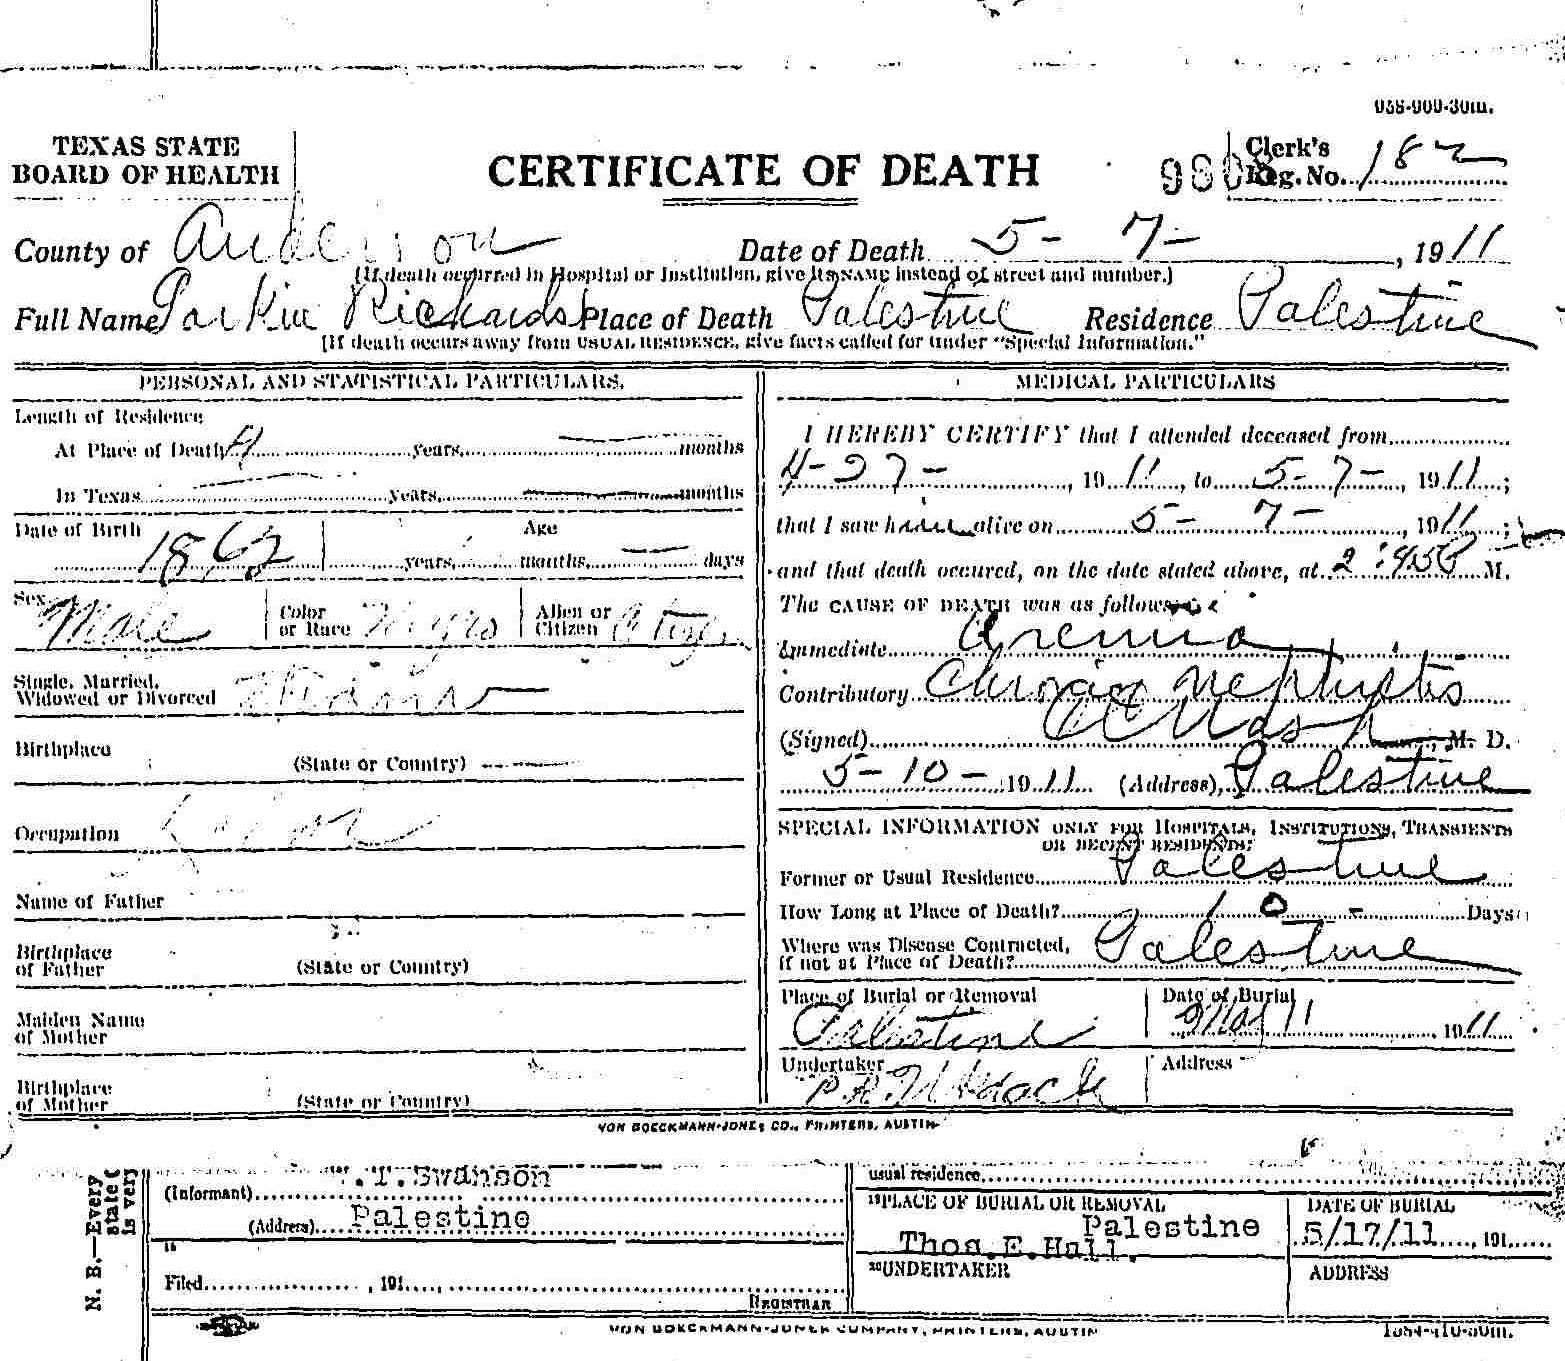 938-909-30m.
TEXAS STATE
BOARD OF HEALTH
CERTIFICATE OF DEATH
9808
Clerk's
Reg. No. 182
County of Anderson Date of Death 5-7-, 1911
[If death occurred in Hospital or Institution, give its NAME instead of street and number.]
Full Name Richards Place of Death Palestine Residence Palestine
[If death occurs away from USUAL RESIDENCE, give facts called for under "Special Information."
PERSONAL AND STATISTICAL PARTICULARS.
Length of Residence
At Place of Death years, months
In Texas years, months
Date of Birth Age
1862 years, months, days
Sex Male Color or Race Negro Alien or Citizen
Single, Married,
Widowed or Divorced
Birthplace
(State or Country)
Occupation
Name of Father
Birthplace
of Father (State or Country)
Maiden Name
of Mother
Birthplace
of Mother (State or Country)
MEDICAL PARTICULARS
I HEREBY CERTIFY that I attended deceased from
4-27-, 1911, to 5-7-, 1911;
that I saw him alive on 5-7-, 1911;
and that death occured, on the date stated above, at 2:45 P M.
The CAUSE OF DEATH was as follows:
Immediate Uremia
Contributory Chronic Nephritis
(Signed) Nash, M. D.
5-10-1911 (Address), Palestine
SPECIAL INFORMATION ONLY FOR HOSPITALS, INSTITUTIONS, TRANSIENTS
OR RECENT RESIDENTS:
Former or Usual Residence Palestine
How Long at Place of Death? 10- Days
Where was Disease Contracted,
if not at Place of Death? Palestine
Place of Burial or Removal Date of Burial
Palestine May 11, 1911
Undertaker Address
P.R.
VON BOECKMANN-JONES CO., PRINTERS, AUSTIN
N. B.—Every
state
is very
(Informant) T. Swanson
(Address) Palestine
Filed, 191
REGISTRAR
usual residence
19 PLACE OF BURIAL OR REMOVAL DATE OF BURIAL
Palestine 5/17/11, 191
Thos. E. Hall.
20 UNDERTAKER ADDRESS
VON BOECKMANN-JONES COMPANY, PRINTERS, AUSTIN
1884-410-50m.